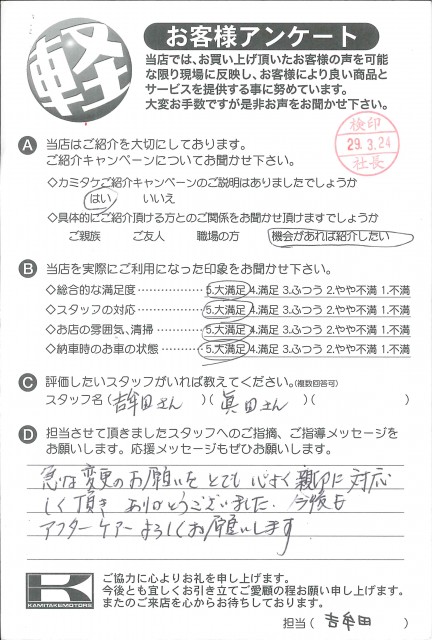 軽
お客様アンケート
当店では、お買い上げ頂いたお客様の声を可能
な限り現場に反映し、お客様により良い商品と
サービスを提供する事に努めています。
大変お手数ですが是非お声をお聞かせ下さい。
検印
29.3.24
社長
A 当店はご紹介を大切にしております。
ご紹介キャンペーンについてお聞かせ下さい。
◇カミタケご紹介キャンペーンのご説明はありましたでしょうか
はい いいえ
◇具体的にご紹介頂ける方とのご関係をお聞かせ頂けますでしょうか
ご親族 ご友人 職場の方 機会があれば紹介したい
B 当店を実際にご利用になった印象をお聞かせ下さい。
◇総合的な満足度……………5.大満足 4.満足 3.ふつう 2.やや不満 1.不満
◇スタッフの対応……………5.大満足 4.満足 3.ふつう 2.やや不満 1.不満
◇お店の雰囲気、清掃………5.大満足 4.満足 3.ふつう 2.やや不満 1.不満
◇納車時のお車の状態………5.大満足 4.満足 3.ふつう 2.やや不満 1.不満
C 評価したいスタッフがいれば教えてください。(複数回答可)
スタッフ名(吉牟田さん)(眞田さん)( )
D 担当させて頂きましたスタッフへのご指摘、ご指導メッセージを
お願いします。応援メッセージもぜひお願いします。
急な変更のお願いをとても心よく親切に対応
して頂き ありがとうございました。今後も
アフターケアーよろしくお願いします
K
KAMITAKE MOTORS
ご協力に心よりお礼を申し上げます。
今後とも宜しくお引き立てご愛顧の程お願い申し上げます。
またのご来店を心からお待ちしております。
担当(吉牟田)